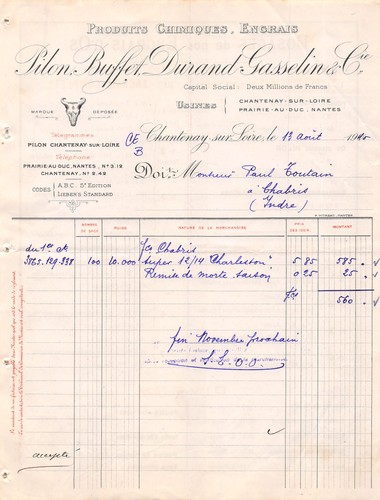 PRODUITS CHIMIQUES, ENGRAIS
Pilon, Buffet, Durand-Gasselin & Cie
Capital Social: Deux Millions de Francs
USINES
CHANTENAY-SUR-LOIRE
PRAIRIE-AU-DUC, NANTES
MARQUE DÉPOSÉE
Télégrammes:
PILON CHANTENAY-SUR-LOIRE
Téléphone:
PRAIRIE-AU-DUC, NANTES, No 3.19
CHANTENAY, No 9.48
CODES
A.B.C. 5e EDITION
LIEBER'S STANDARD
CE
B
Chantenay-sur-Loire, le 13 août 19
Doit Monsieur Paul Toutain
à Chabris
(Indre)
NOMBRE DE SACS
POIDS
NATURE DE LA MARCHANDISE
PRIX
MONTANT
du 1er ct
s/s Chabris
3865.129.338 100 10.000 super 12/14 "Charleston" 5 85 585
Remise de morte saison 0 25 25
560
fin Novembre prochain
S.E.O.O.
accepté